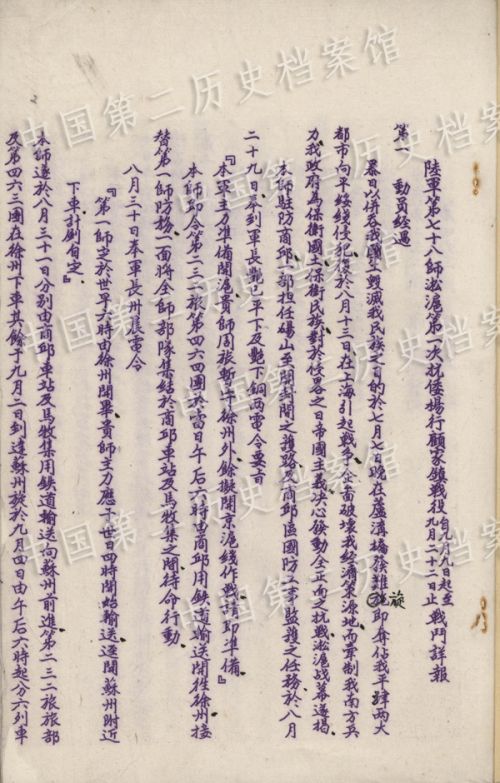 陸軍第七十八師淞滬第一次抗倭楊行顧家鎮戰役自九月九日起至九月二十二日止戰鬥詳報
第一　動員經過
暴日以併吞我國土毀滅我民族之目的於七月七晚在蘆溝橋發難旋即奪佔我平津兩大
都市向平綏綫侵犯復於八月十三日在上海引起戰爭企畫破壞我經濟東源地而牽制我南方兵
力我政府為保衛國土保衛民族對於侵畧之日帝國主義決心發動全正面之抗戰淞滬戰幕遂揭
本師駐防商邱一部担任碭山至開封間之護路及商邱區國防工事監護之任務於八月
二十九日長到軍長艷巳平下及艷下銅兩電令要旨
『本軍主力準備開滬貴師周旅暫守徐州外餘擬開京滬綫作戰請即準備』
本師即令第二三二旅第四六四團於當日午后六時由商邱用鉄道輸送開往徐州接
替第一師防務一面將全師部隊集結於商邱車站及馬牧集之間待命行動
八月三十日奉軍長州晨電令
『第一師之於世早六時由徐州開畢貴師主力應于世日四時開始輸送逕開蘇州附近
下車計劃自定』
本師遂於八月三十一日分別由商邱車站及馬牧集用鉄道輸送向蘇州前進第二三二旅旅部
及第四六三團在徐州下車其餘于九月二日到達蘇州旋於九月四日由午后六時起分六列車
中国第二历史档案馆
中国第二历史档案馆
中国第二历史档案馆
中国第二历史档案馆